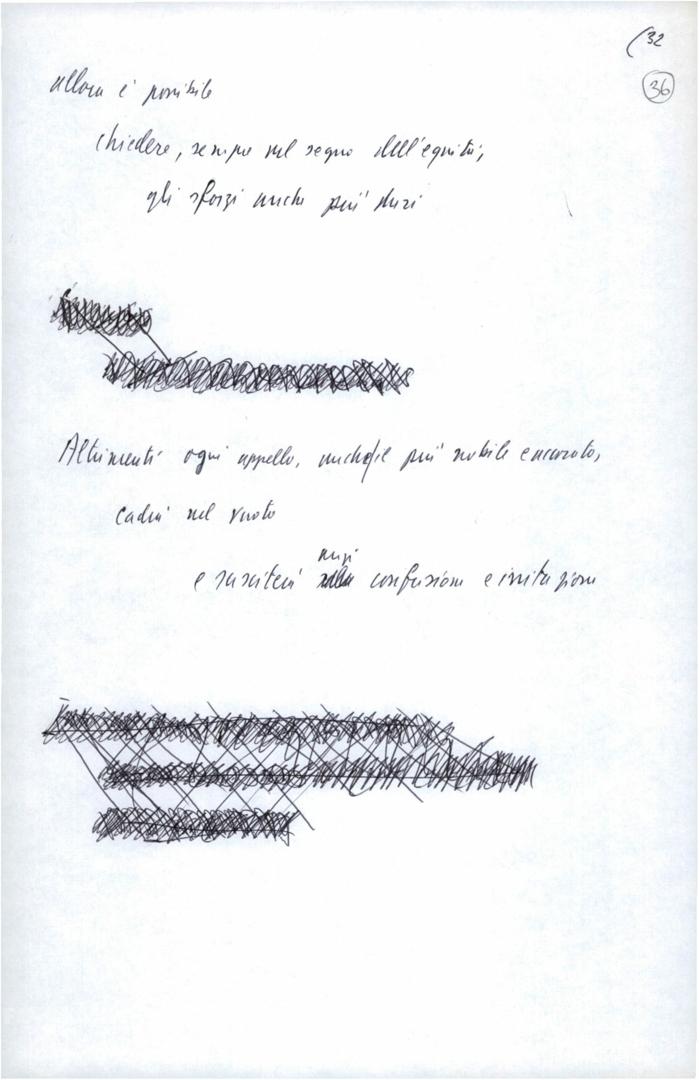 (32
36
allora è possibile
chiedere, sempre nel segno dell'equità,
gli sforzi anche più duri
Altrimenti ogni appello, anche il più nobile e accorato,
cadrà nel vuoto
anzi
e susciterà confusione e irritazione